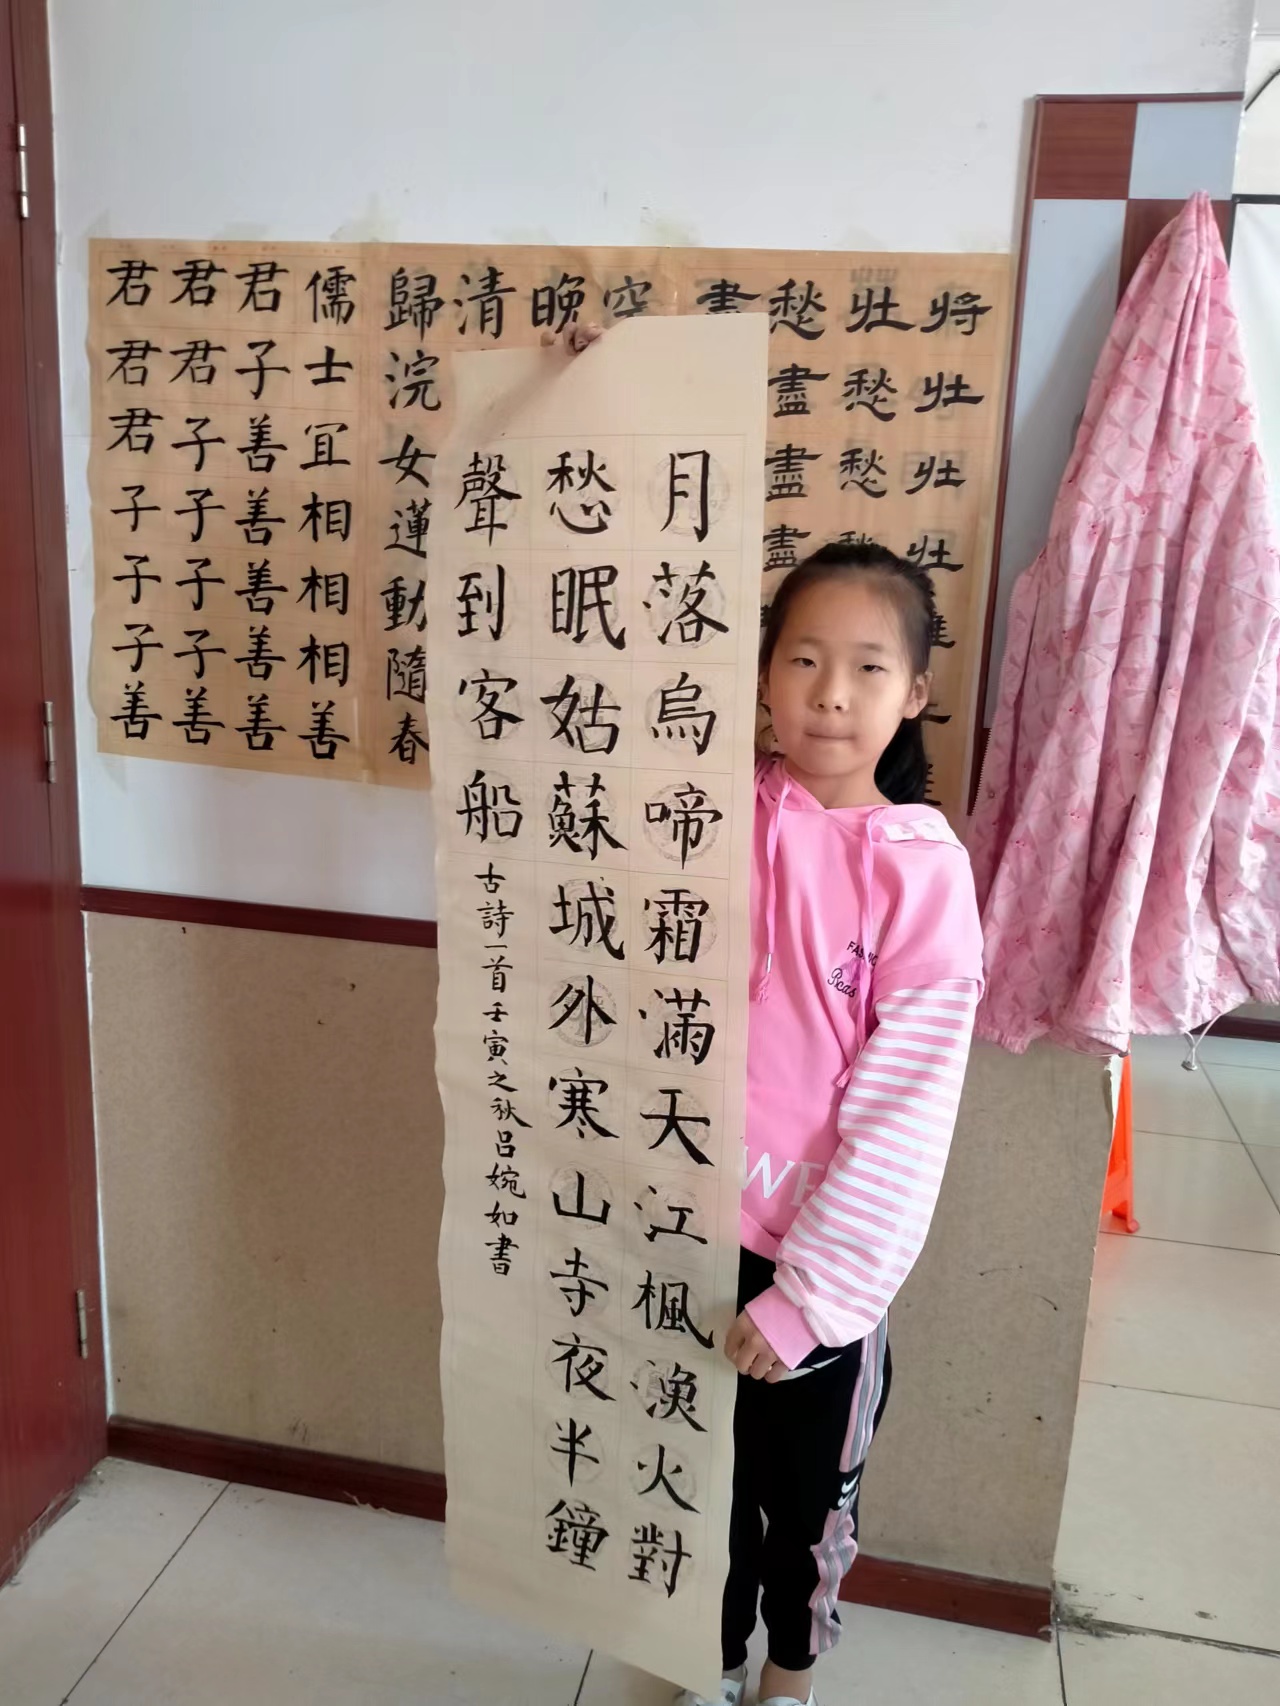 月落烏啼霜滿天江楓漁火對
愁眠姑蘇城外寒山寺夜半鐘
聲到客船
古詩一首壬寅之秋吕婉如書
将壮壮壮
壮愁愁愁
愁盡盡盡
空
晚
清
歸浣女蓮動隨春
儒士冝相相相善
君子善善善善善
君君子子子子善
君君君子子子善
Rcas
WE